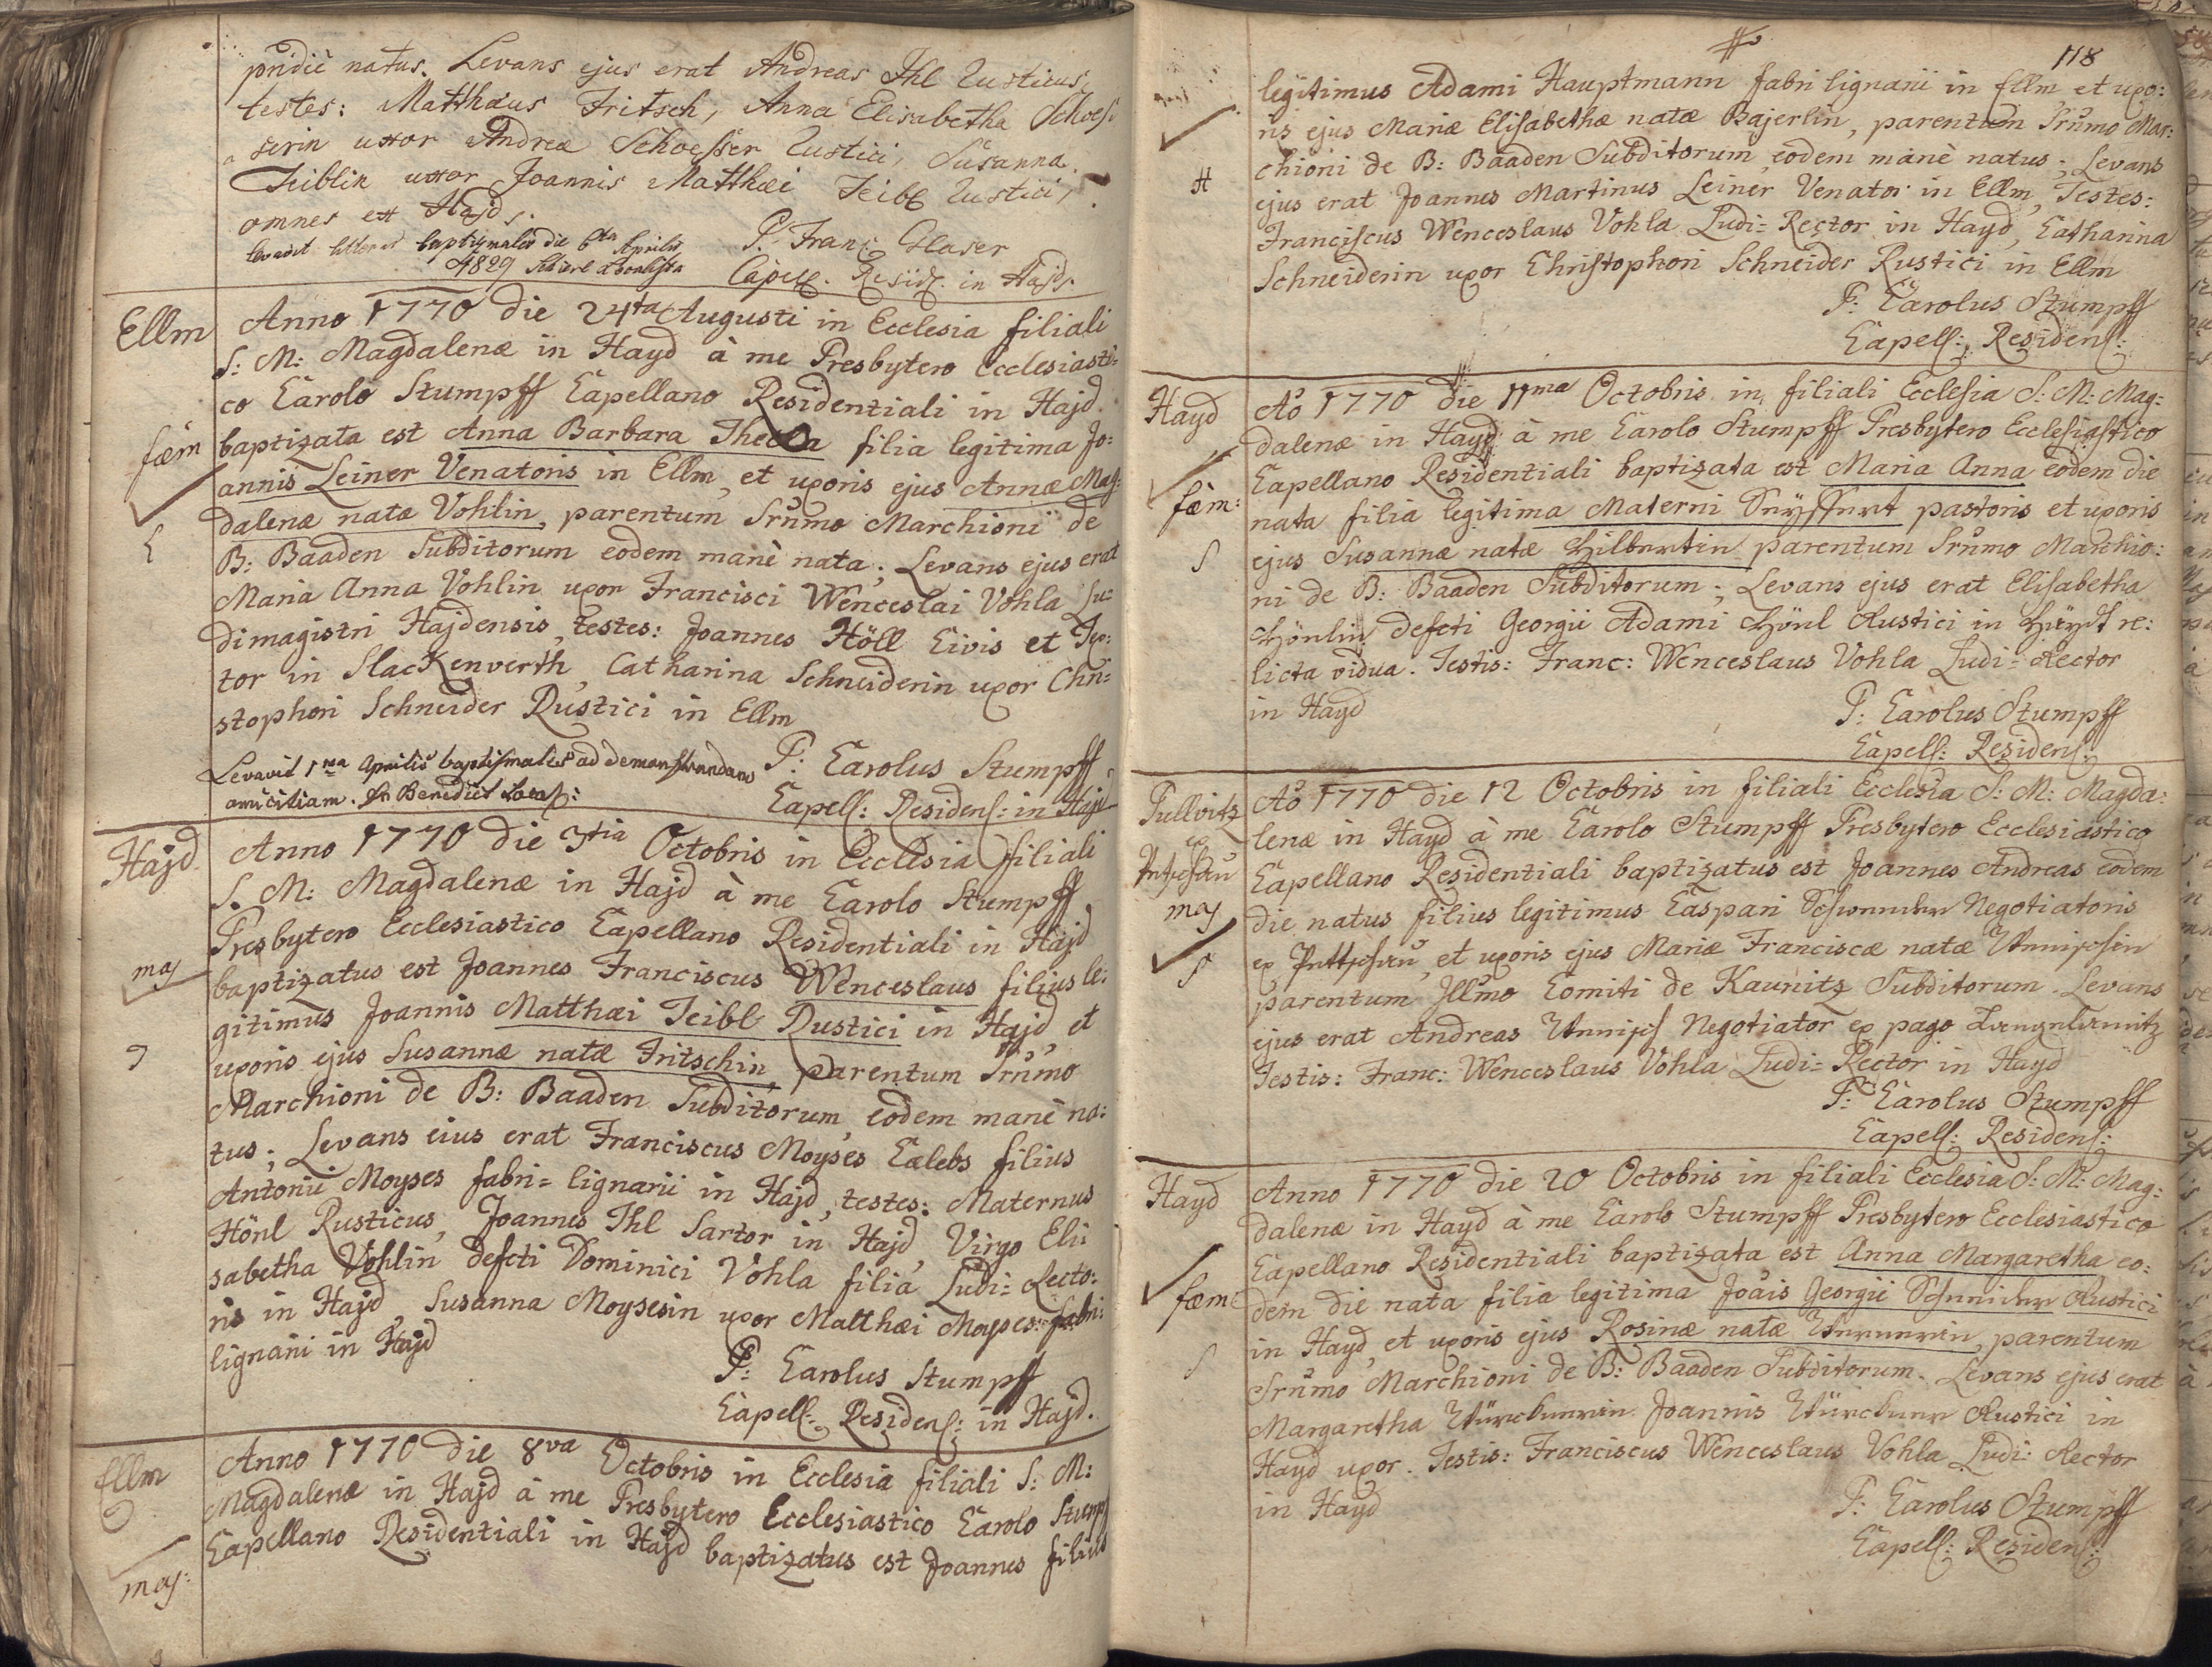 pridiè natus. Levans ejus erat Andreas Ihl Rusticus,
testes: Matthæus Fritsch, Anna Elisabetha Schoes-
serin uxor Andreæ Schoesser Rustici, Susanna
Teiblin uxor Joannis Matthæi Teibl Rustici,
omnes ex Hajd.
Levavit litteras baptismales die 6ta Aprilis
1829
P. Franc Glaser
Capell. Resid. in Hajd.
Ellm
Anno 1770 die 24ta Augusti in Ecclesia filiali
S: M: Magdalenæ in Hayd à me Presbytero Ecclesiasti-
co Carolo Stumpff Capellano Residentiali in Hajd.
fæm
baptizata est Anna Barbara Thecla filia legitima Jo:
annis Leiner Venatoris in Ellm, et uxoris ejus Annæ Mag:
dalenæ natæ Vohlin, parentum Srm̃o Marchioni de
B: Baaden Subditorum eodem manè nata; Levans ejus erat
Maria Anna Vohlin uxor Francisci Wenceslai Vohla Lu-
dimagistri Hajdensis, testes: Joannes Höll Civis et Tex:
tor in Slackenverth, Catharina Schneiderin uxor Chri-
stophori Schneider Rustici in Ellm
Levavit 1ma Aprilis baptismales ad demonstrandam
amicitiam. Benedict
P: Carolus Stumpff
Capell: Residens: in Hajd
Hajd
Anno 1770 die 3tia Octobris in Ecclesia filiali
S. M: Magdalenæ in Hajd à me Carolo Stumpff
Presbytero Ecclesiastico Capellano Residentiali in Hajd
mas
baptizatus est Joannes Franciscus Wenceslaus filius le:
gitimus Joannis Matthæi Teibl Rustici in Hajd, et
uxoris ejus Susannæ natæ Fritschin, parentum Srm̃o
Marchioni de B: Baaden Subditorum, eodem manè na:
tus; Levans eius erat Franciscus Moyses Cælebs filius
Antonii Moyses fabri-lignarii in Hajd, testes: Maternus
Hönl Rusticus, Joannes Ihl Sartor in Hajd, Virgo Eli:
sabetha Vohlin defcti Dominici Vohla filia Ludi-Recto:
ris in Hajd, Susanna Moysesin uxor Matthæi Moyses fabri:
lignarii in Hajd
P: Carolus Stumpff
Capell: Residens: in Hajd.
Ellm
Anno 1770 die 8va Octobris in Ecclesia filiali S: M:
Magdalenæ in Hajd à me Presbytero Ecclesiastico Carolo Stumpff
Capellano Residentiali in Hajd baptizatus est Joannes filius
mas:
118
legitimus Adami Hauptmann fabri lignarii in Ellm et uxo:
ris ejus Mariæ Elisabethæ natæ Bajerlin, parentum Srm̃o Mar:
chioni de B: Baaden Subditorum, eodem manè natus; Levans
H
ejus erat Joannes Martinus Leiner Venator in Ellm, Testes:
Franciscus Wenceslaus Vohla Ludi-Rector in Hayd, Catharina
Schneiderin uxor Christophori Schneider Rustici in Ellm
P: Carolus Stumpff
Capell: Residens:
Hayd
Aō 1770 die 11ma Octobris in filiali Ecclesia S: M: Mag:
dalenæ in Hayd à me Carolo Stumpff Presbytero Ecclesiastico
Capellano Residentiali baptizata est Maria Anna eodem die
fæm:
nata filia legitima Materni Seyffert pastoris et uxoris
S
ejus Susannæ natæ Hilbertin parentum Srm̃o Marchio:
ni de B: Baaden Subditorum; Levans ejus erat Elisabetha
Hönlin defcti Georgii Adami Hönl Rustici in Haydt re:
licta vidua. Testis: Franc: Wenceslaus Vohla Ludi-Rector
in Hayd
P: Carolus Stumpff
Capell: Residens:
Tullvitz
ex
mas
Aō 1770 die 12 Octobris in filiali Ecclesia S: M: Magda:
lenæ in Hayd à me Carolo Stumpff Presbytero Ecclesiastico
Capellano Residentiali baptizatus est Joannes Andreas eodem
die natus filius legitimus Caspari Negotiatoris
S
ex et uxoris ejus Mariæ Franciscæ natæ
parentum Illm̃o Comiti de Kaunitz Subditorum. Levans
ejus erat Andreas Negotiator ex pago
Testis: Franc: Wenceslaus Vohla Ludi-Rector in Hayd
P: Carolus Stumpff
Capell: Residens:
Hayd
Anno 1770 die 20 Octobris in filiali Ecclesia S: M: Mag:
dalenæ in Hayd à me Carolo Stumpff Presbytero Ecclesiastico
Capellano Residentiali baptizata est Anna Margaretha eo:
fæm:
dem die nata filia legitima Joais Georgii Schneider Rustici
in Hayd, et uxoris ejus Rosinæ natæ parentum
S
Srm̃o Marchioni de B: Baaden Subditorum. Levans ejus erat
Margaretha Joannis Rustici in
Hayd uxor. Testis: Franciscus Wenceslaus Vohla Ludi: Rector
in Hayd
P: Carolus Stumpff
Capell: Residens: